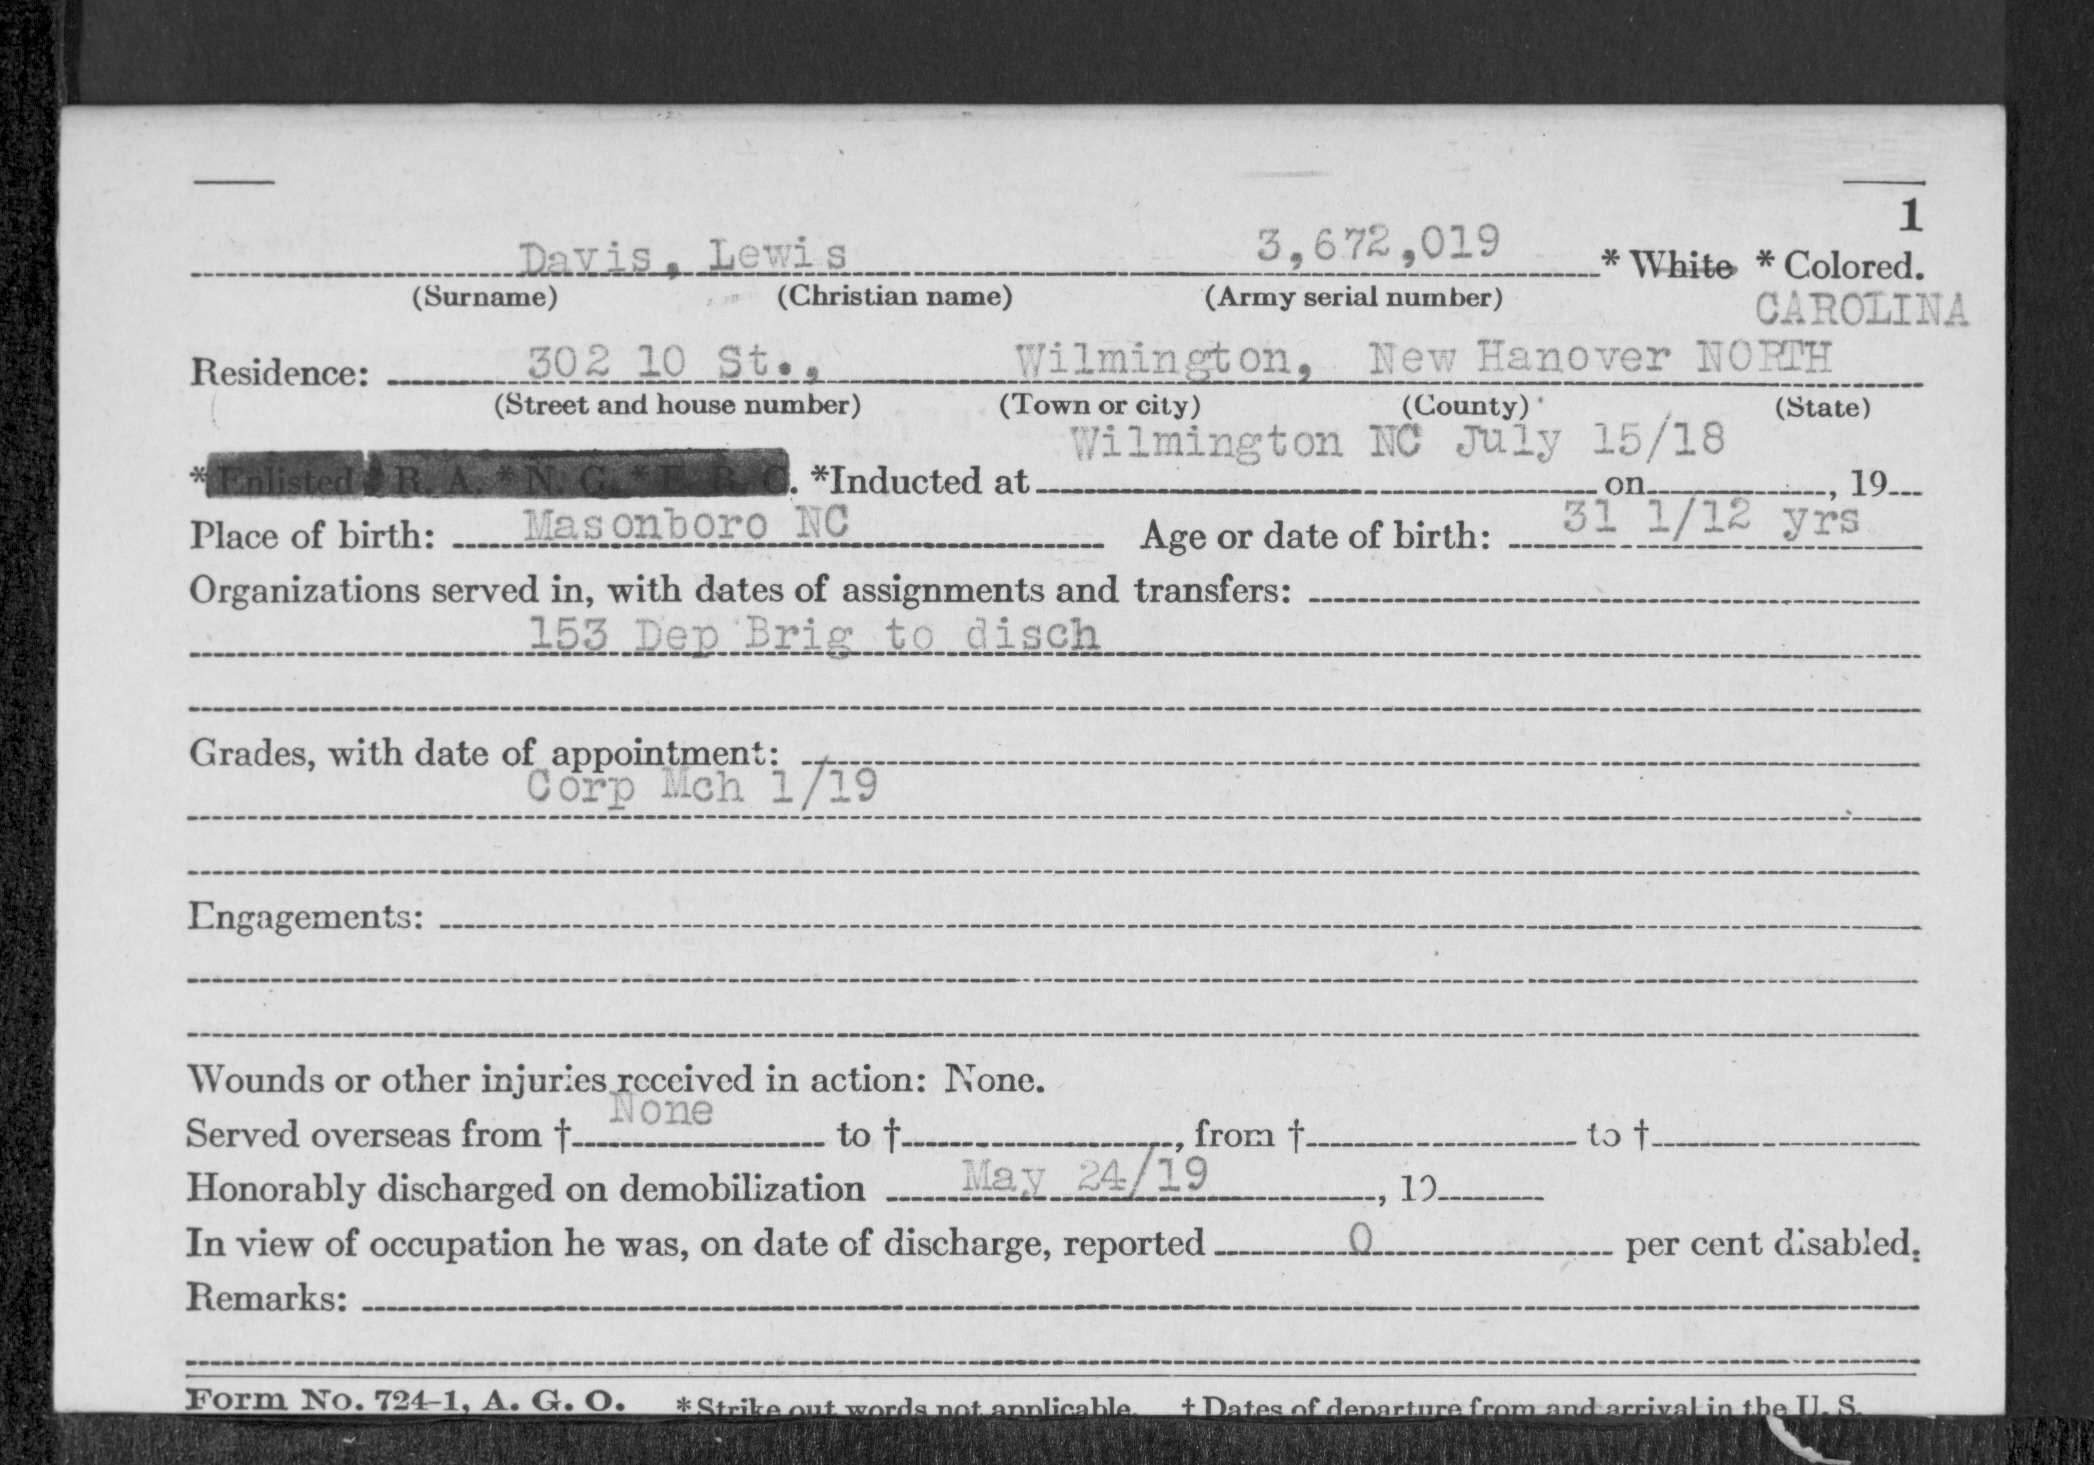 1
Davis, Lewis 3,672,019 * White * Colored.
(Surname) (Christian name) (Army serial number)
CAROLINA
Residence: 302 10 St., Wilmington, New Hanover NORTH
(Street and house number) (Town or city) (County) (State)
Wilmington NC July 15/18
*Enlisted * R. A. * N. G. * E. R. C. *Inducted at on , 19
Place of birth: Masonboro NC Age or date of birth: 31 1/12 yrs
Organizations served in, with dates of assignments and transfers:
153 Dep Brig to disch
Grades, with date of appointment:
Corp Mch 1/19
Engagements:
Wounds or other injuries received in action: None.
None
Served overseas from † to †, from † to †
Honorably discharged on demobilization May 24/19, 19
In view of occupation he was, on date of discharge, reported 0 per cent disabled.
Remarks:
Form No. 724-1, A. G. O. *Strike out words not applicable. † Dates of departure from and arrival in the U. S.